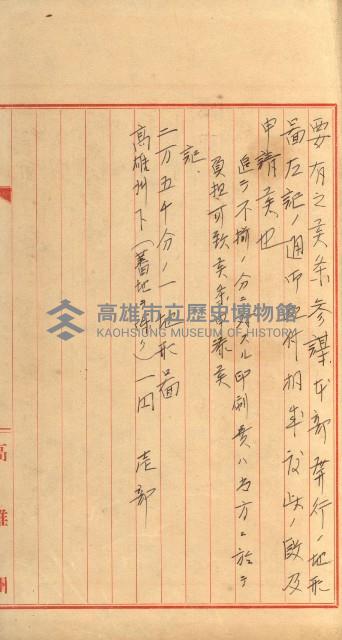 要有之候条参謀本部発行ノ地形
図左記ノ通御送付相成度此ノ段及
申請候也
追テ不揃ノ分ニ対スル印刷費ハ当方ニ於テ
負担可致候条申添候
記
二万五千分ノ一地形図
高雄州下(蕃地ヲ除ク)一円 壱部
高雄州
高雄市立歷史博物館
KAOHSIUNG MUSEUM OF HISTORY